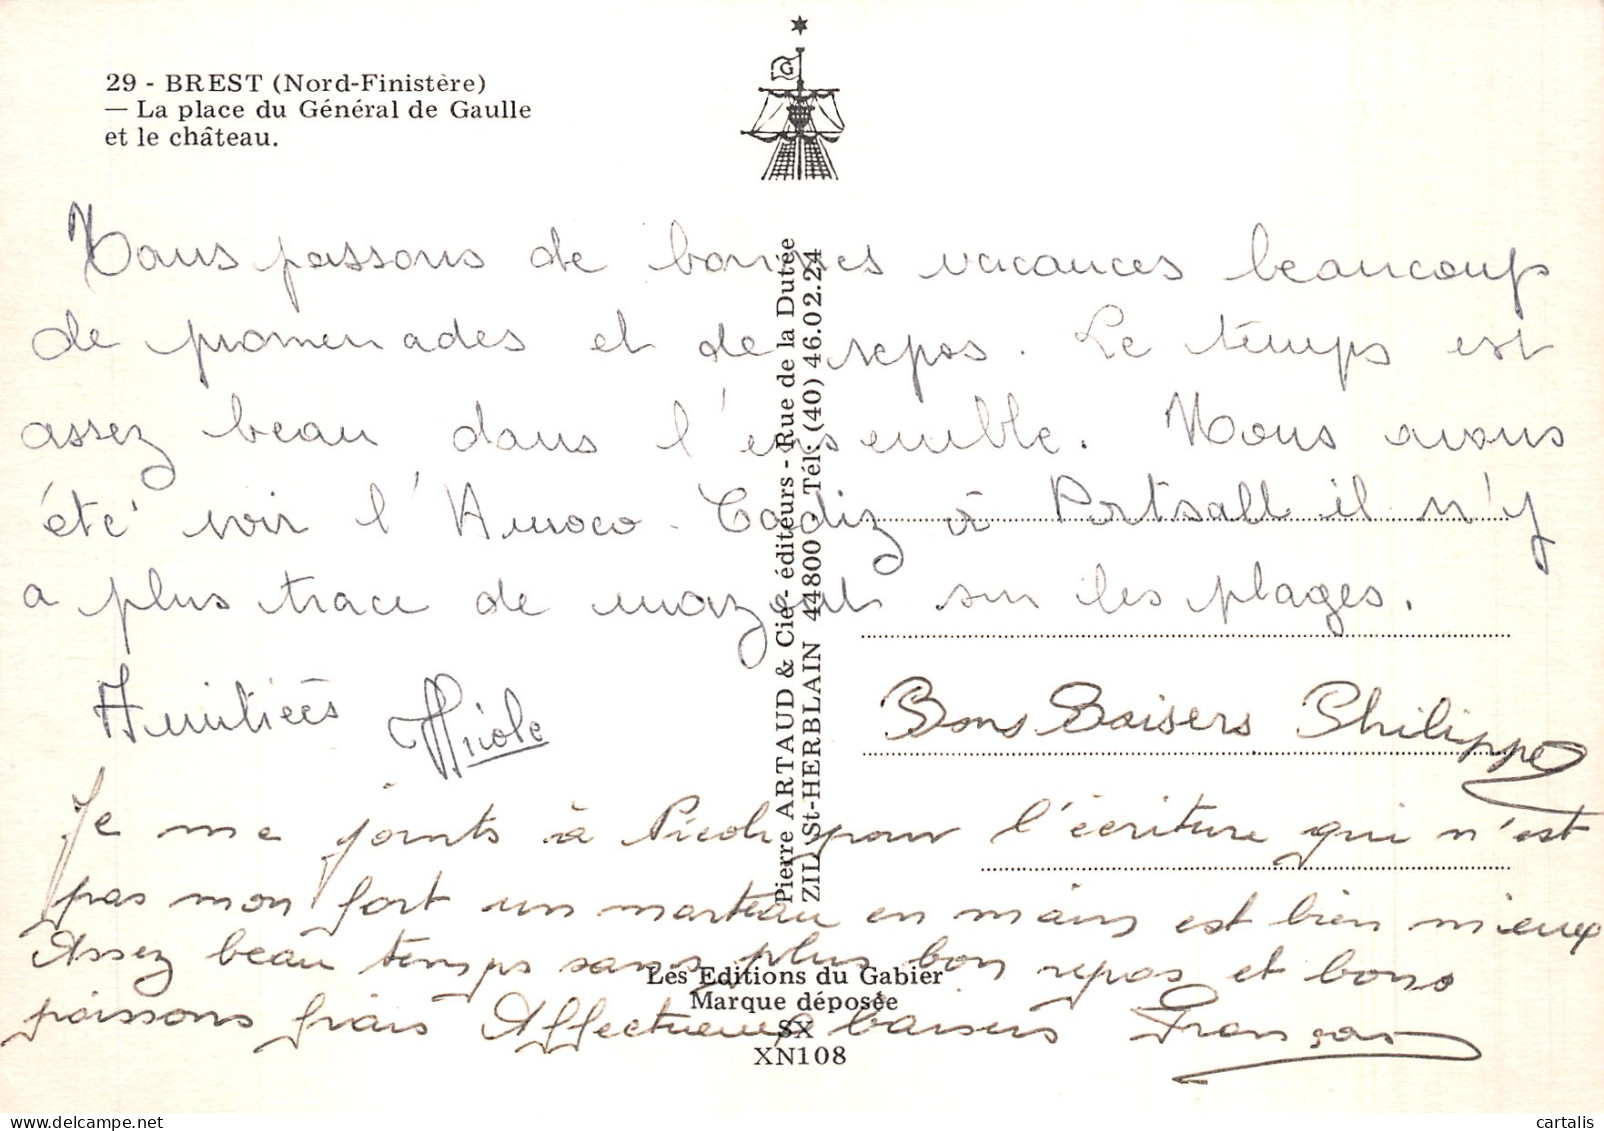 29 - BREST (Nord-Finistère)
— La place du Général de Gaulle
et le château.
Nous passons de bonnes vacances beaucoup
de promenades et de repos. Le temps est
assez beau dans l'ensemble. Nous avons
été voir l'Amoco-Cadiz à Portsall il n'y
a plus trace de mazout sur les plages.
Amitiées Nicole
Bons Baisers Philippe
Je me joints à Nicole pour l'écriture qui n'est
pas mon fort un marteau en mains est bien mieux
Assez beau temps sans plus bon repos et bons
poissons frais Affectueux baisers François
Pierre ARTAUD & Cie - éditeurs - Rue de la Dutée
ZIL St-HERBLAIN 44800 Tél. (40) 46.02.24
Les Editions du Gabier
Marque déposée
SX
XN108
cartalis